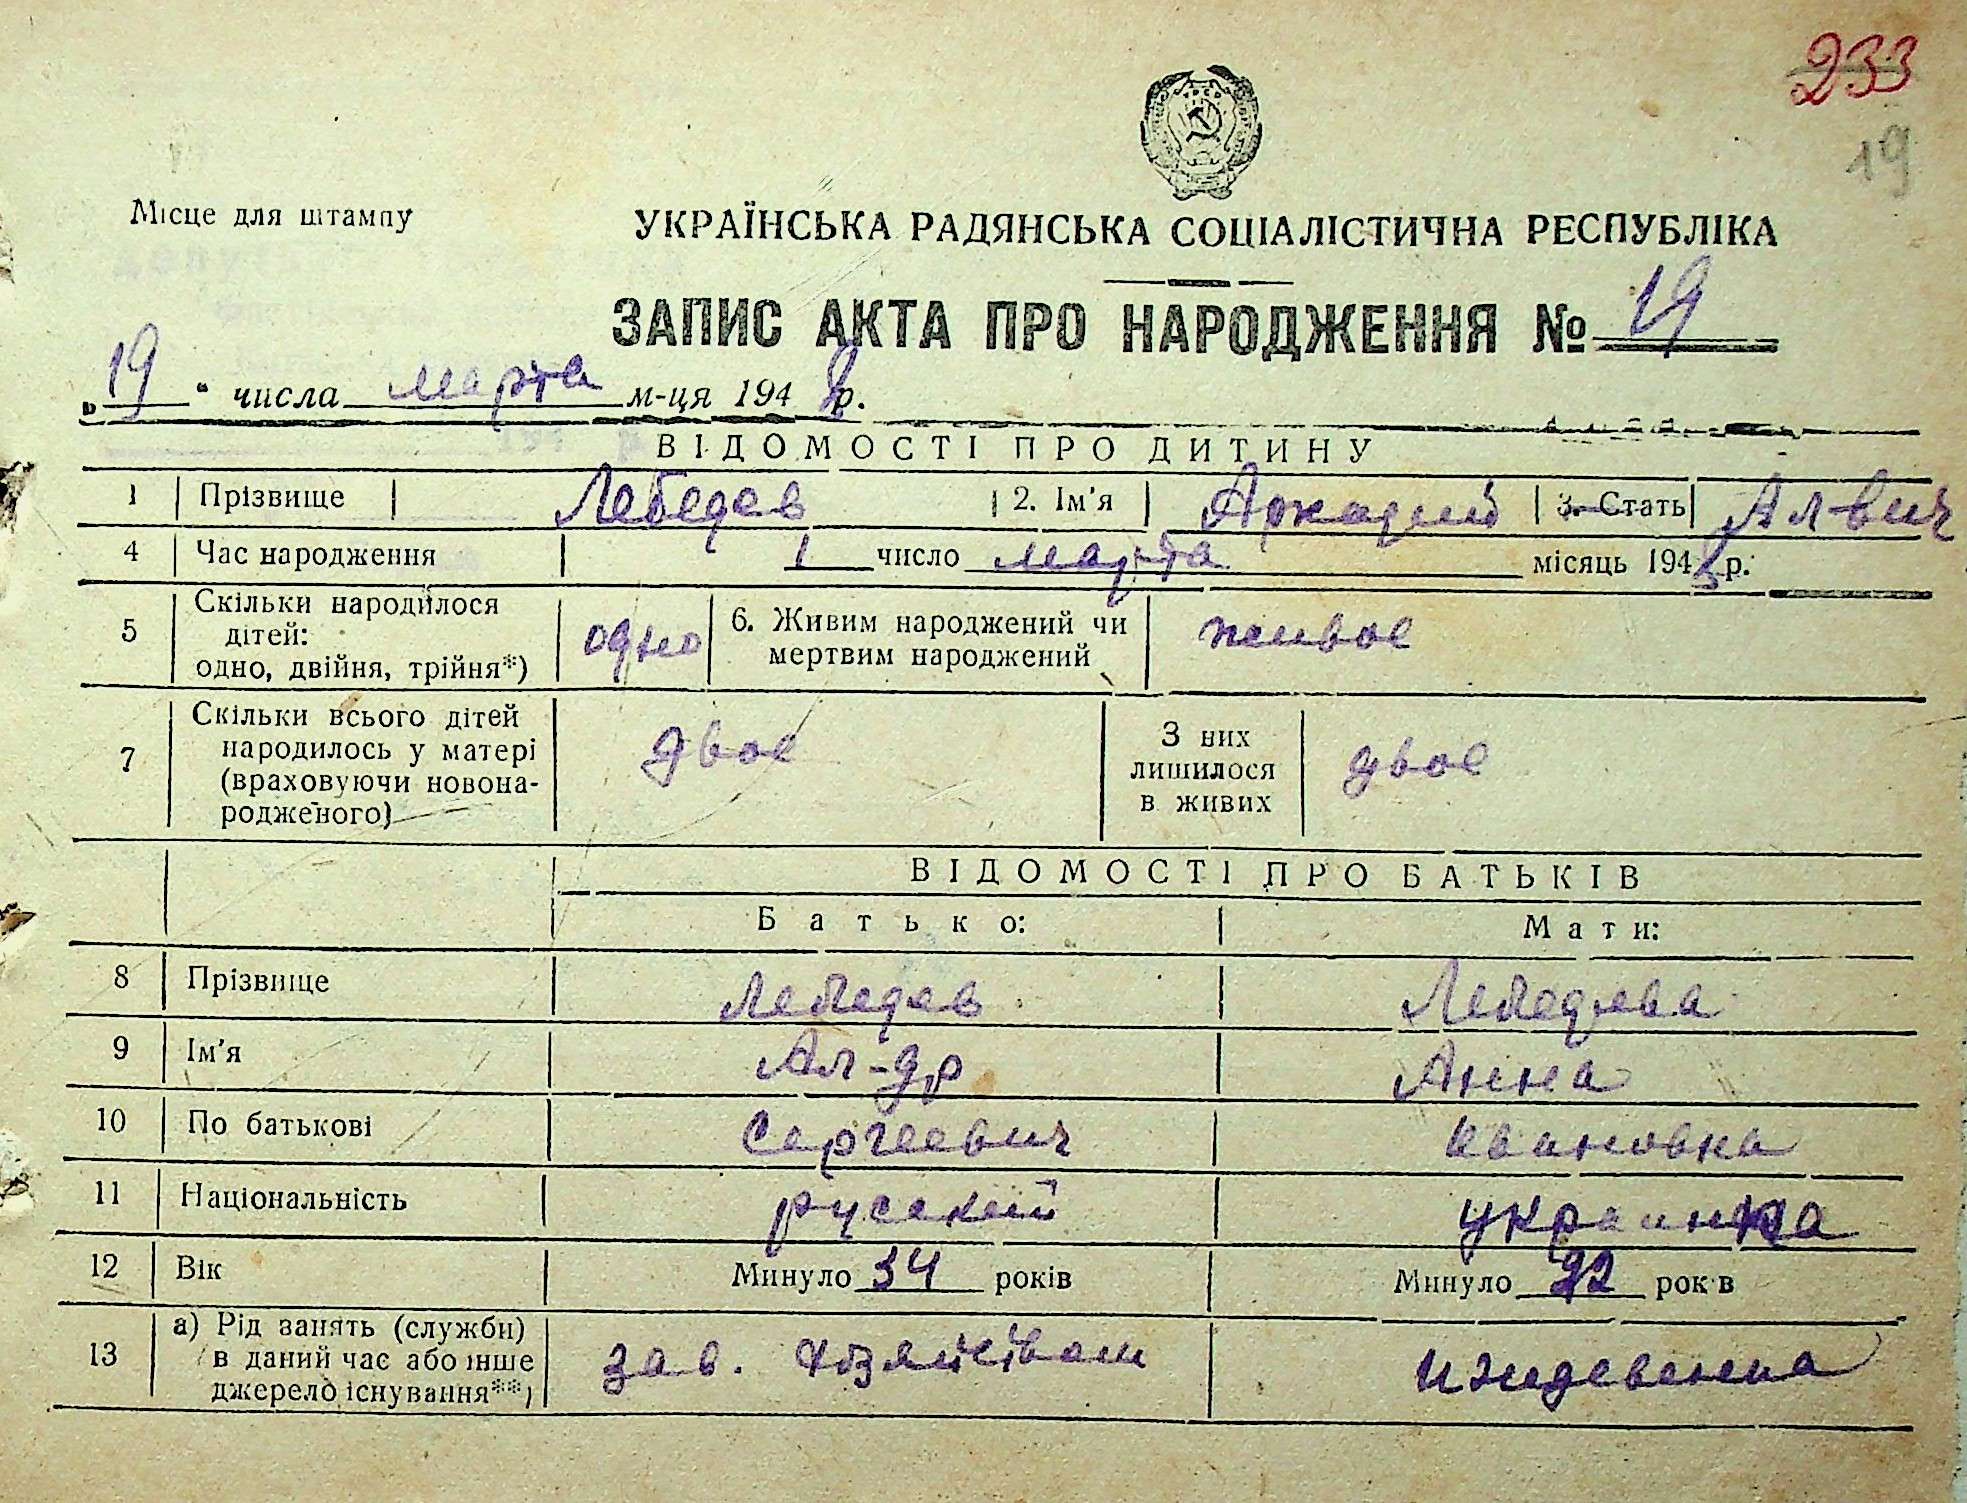 233
19
Місце для штампу
УКРАЇНСЬКА РАДЯНСЬКА СОЦІАЛІСТИЧНА РЕСПУБЛІКА
ЗАПИС АКТА ПРО НАРОДЖЕННЯ № 19
„19“ числа марта м-ця 1948 р.
ВІДОМОСТІ ПРО ДИТИНУ
1 Прізвище Лебедев 2. Ім'я Аркадий 3. Стать Ал-вич
4 Час народження 1 число марта місяць 1948 р.
5 Скільки народилося дітей: одно, двійня, трійня*) одно 6. Живим народжений чи мертвим народжений живое
7 Скільки всього дітей народилось у матері (враховуючи новонародженого) двое З них лишилося в живих двое
ВІДОМОСТІ ПРО БАТЬКІВ
Батько: Мати:
8 Прізвище Лебедев Лебедева
9 Ім'я Ал-др Анна
10 По батькові Сергеевич Ивановна
11 Національність русский украинка
12 Вік Минуло 34 років Минуло 32 рок в
13 а) Рід занять (служби) в даний час або інше джерело існування**) зав. хозяйством иждевенка